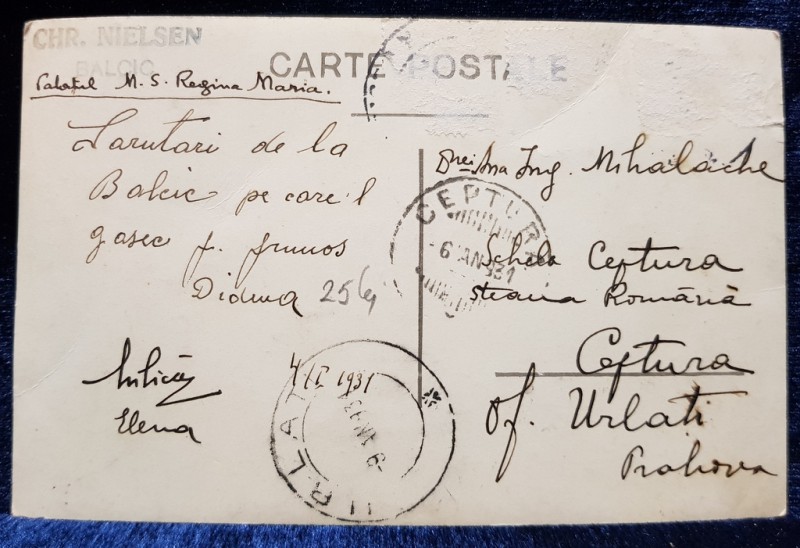 CHR. NIELSEN
BALCIC
CARTE POSTALE
Palatul M. S. Regina Maria.
Sarutari de la
Balcic pe care-l
gasec f. frumos
Didina
256
Elena
4/I 1931
URLATI
CEPTURA
-6 IAN 931
Drei Ana Ing. Mihalache
Schela Ceptura
Steaua Română
Ceptura
Of. Urlati
Prahova